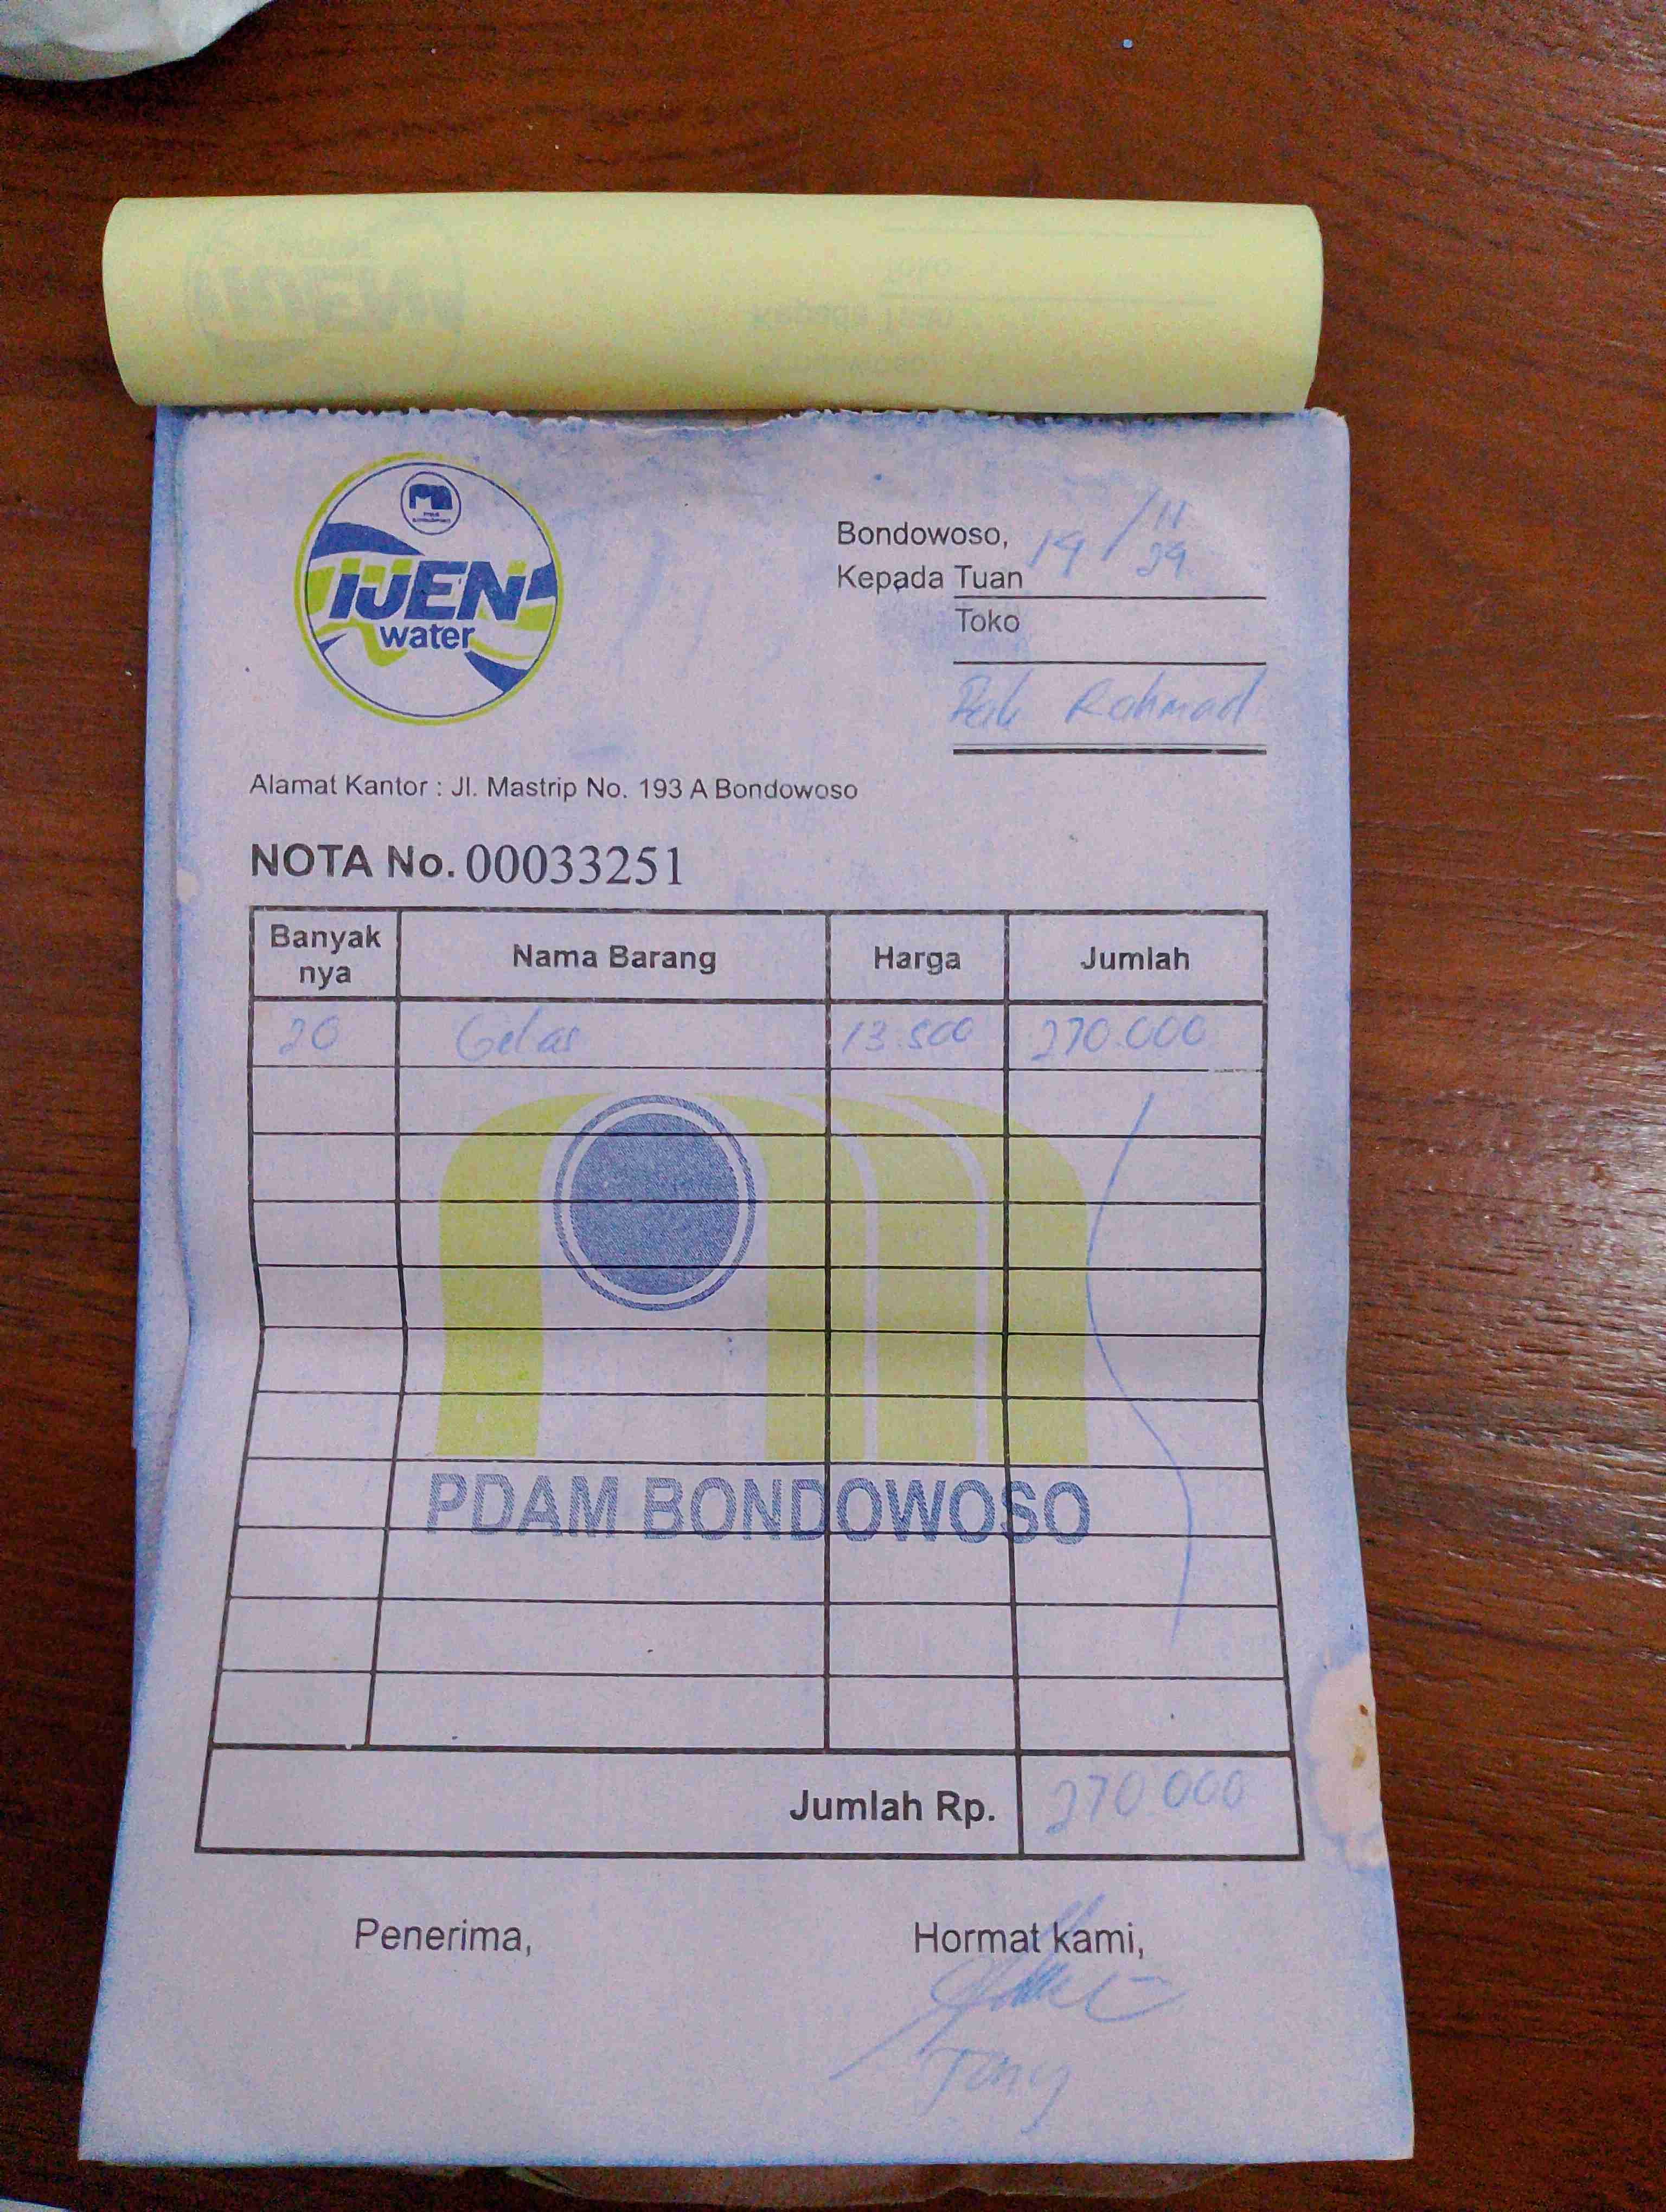 IJEN
water
Bondowoso, 14 / 11
Kepada Tuan
Toko
Pak Rahmad
Alamat Kantor : Jl. Mastrip No. 193 A Bondowoso
NOTA No. 00033251
Banyak nya Nama Barang Harga Jumlah
20 Gelas 13.500 270.000
PDAM BONDOWOSO
Jumlah Rp. 270 000
Penerima, Hormat kami,
Tony